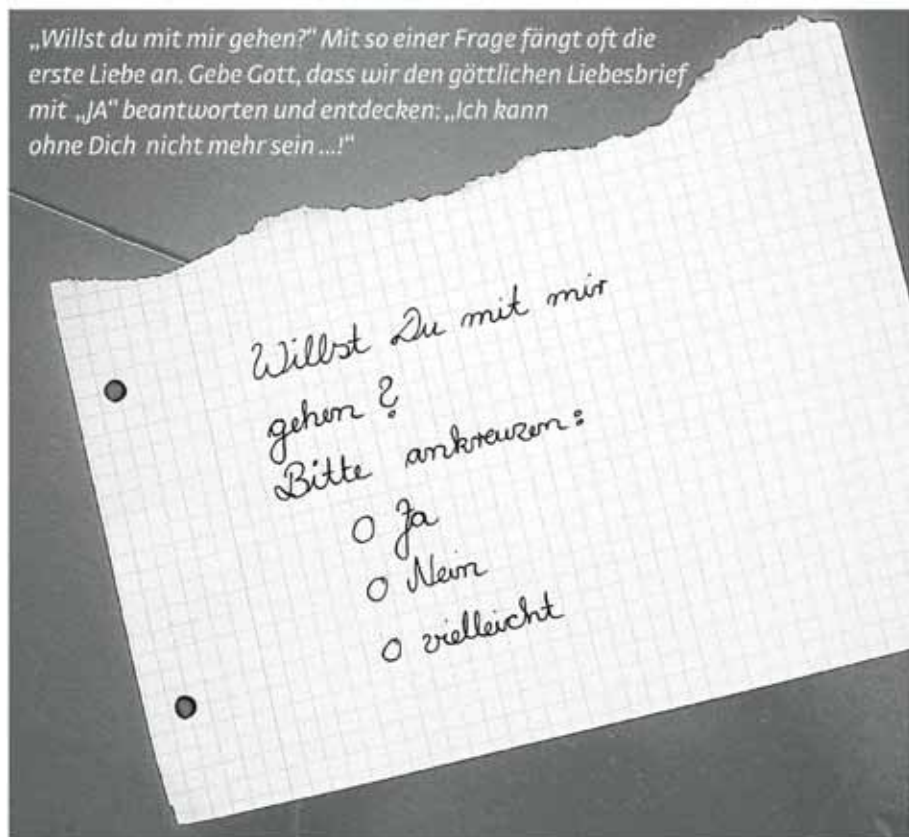 „Willst du mit mir gehen?" Mit so einer Frage fängt oft die
erste Liebe an. Gebe Gott, dass wir den göttlichen Liebesbrief
mit „JA" beantworten und entdecken: „Ich kann
ohne Dich nicht mehr sein ...!"
Willst Du mit mir
gehen ?
Bitte ankreuzen:
O Ja
O Nein
O vielleicht